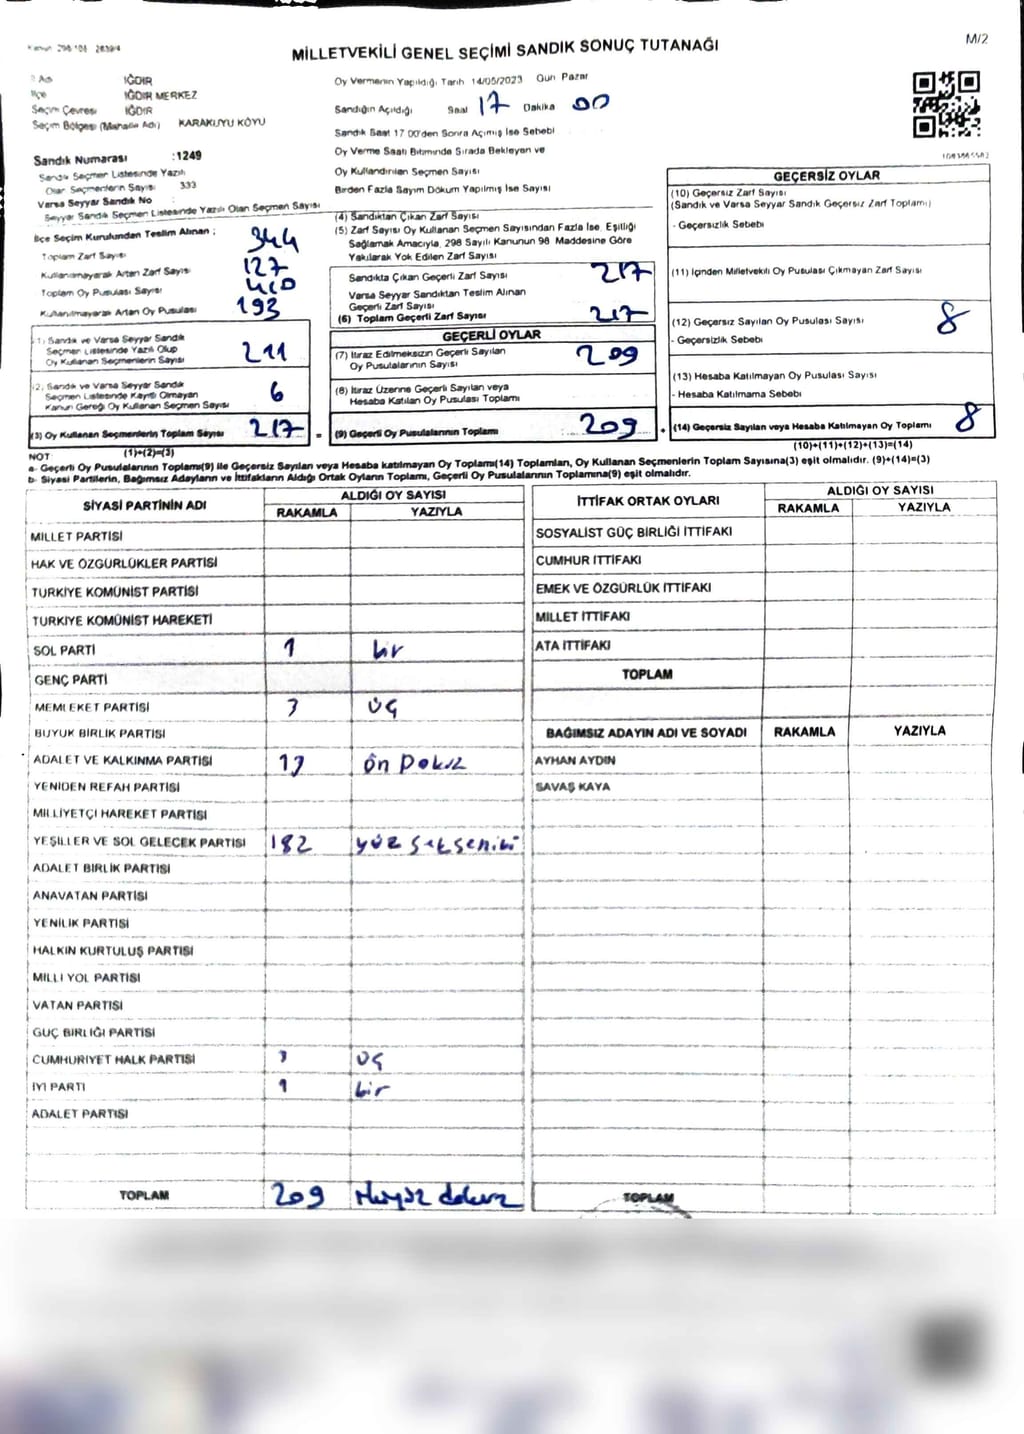 Kanun 298/106 2839/4
MİLLETVEKİLİ GENEL SEÇİMİ SANDIK SONUÇ TUTANAĞI
M/2
İl Adı IĞDIR
İlçe IĞDIR MERKEZ
Seçim Çevresi IĞDIR
Seçim Bölgesi (Mahalle Adı) KARAKUYU KÖYÜ
Oy Vermenin Yapıldığı Tarih 14/05/2023 Gün Pazar
Sandığın Açıldığı Saat 17 Dakika 00
Sandık Saat 17 00'den Sonra Açılmış İse Sebebi
Oy Verme Saati Bitiminde Sırada Bekleyen ve
Oy Kullandırılan Seçmen Sayısı
Birden Fazla Sayım Döküm Yapılmış İse Sayısı
Sandık Numarası :1249
Sandık Seçmen Listesinde Yazılı
Olan Seçmenlerin Sayısı 333
Varsa Seyyar Sandık No :
Seyyar Sandık Seçmen Listesinde Yazılı Olan Seçmen Sayısı
İlçe Seçim Kurulundan Teslim Alınan ;
Toplam Zarf Sayısı 344
Kullanılmayarak Artan Zarf Sayısı 127
Toplam Oy Pusulası Sayısı 410
Kullanılmayarak Artan Oy Pusulası 193
(1) Sandık ve Varsa Seyyar Sandık
Seçmen Listesinde Yazılı Olup
Oy Kullanan Seçmenlerin Sayısı 211
(2) Sandık ve Varsa Seyyar Sandık
Seçmen Listesinde Kayıtlı Olmayan
Kanun Gereği Oy Kullanan Seçmen Sayısı 6
(3) Oy Kullanan Seçmenlerin Toplam Sayısı 217
(1)+(2)=(3)
(4) Sandıktan Çıkan Zarf Sayısı
(5) Zarf Sayısı Oy Kullanan Seçmen Sayısından Fazla İse, Eşitliği
Sağlamak Amacıyla, 298 Sayılı Kanunun 98 Maddesine Göre
Yakılarak Yok Edilen Zarf Sayısı
Sandıkta Çıkan Geçerli Zarf Sayısı 217
Varsa Seyyar Sandıktan Teslim Alınan
Geçerli Zarf Sayısı
(6) Toplam Geçerli Zarf Sayısı 217
GEÇERLİ OYLAR
(7) İtiraz Edilmeksizin Geçerli Sayılan
Oy Pusulalarının Sayısı 209
(8) İtiraz Üzerine Geçerli Sayılan veya
Hesaba Katılan Oy Pusulası Toplamı
= (9) Geçerli Oy Pusulalarının Toplamı 209
GEÇERSİZ OYLAR
(10) Geçersiz Zarf Sayısı
(Sandık ve Varsa Seyyar Sandık Geçersiz Zarf Toplamı)
- Geçersizlik Sebebi
(11) İçinden Milletvekili Oy Pusulası Çıkmayan Zarf Sayısı
(12) Geçersiz Sayılan Oy Pusulası Sayısı 8
- Geçersizlik Sebebi
(13) Hesaba Katılmayan Oy Pusulası Sayısı
- Hesaba Katılmama Sebebi
+ (14) Geçersiz Sayılan veya Hesaba Katılmayan Oy Toplamı 8
(10)+(11)+(12)+(13)=(14)
NOT:
a- Geçerli Oy Pusulalarının Toplamı(9) ile Geçersiz Sayılan veya Hesaba katılmayan Oy Toplamı(14) Toplamları, Oy Kullanan Seçmenlerin Toplam Sayısına(3) eşit olmalıdır. (9)+(14)=(3)
b- Siyasi Partilerin, Bağımsız Adayların ve İttifakların Aldığı Ortak Oyların Toplamı, Geçerli Oy Pusulalarının Toplamına(9) eşit olmalıdır.
SİYASİ PARTİNİN ADI ALDIĞI OY SAYISI
RAKAMLA YAZIYLA
MİLLET PARTİSİ
HAK VE ÖZGÜRLÜKLER PARTİSİ
TÜRKİYE KOMÜNİST PARTİSİ
TÜRKİYE KOMÜNİST HAREKETİ
SOL PARTİ 1 bir
GENÇ PARTİ
MEMLEKET PARTİSİ 3 üç
BÜYÜK BİRLİK PARTİSİ
ADALET VE KALKINMA PARTİSİ 19 ön Dokuz
YENİDEN REFAH PARTİSİ
MİLLİYETÇİ HAREKET PARTİSİ
YEŞİLLER VE SOL GELECEK PARTİSİ 182 yüz seksen iki
ADALET BİRLİK PARTİSİ
ANAVATAN PARTİSİ
YENİLİK PARTİSİ
HALKIN KURTULUŞ PARTİSİ
MİLLİ YOL PARTİSİ
VATAN PARTİSİ
GÜÇ BİRLİĞİ PARTİSİ
CUMHURİYET HALK PARTİSİ 3 üç
İYİ PARTİ 1 bir
ADALET PARTİSİ
TOPLAM 209 ikiyüz dokuz
İTTİFAK ORTAK OYLARI ALDIĞI OY SAYISI
RAKAMLA YAZIYLA
SOSYALİST GÜÇ BİRLİĞİ İTTİFAKI
CUMHUR İTTİFAKI
EMEK VE ÖZGÜRLÜK İTTİFAKI
MİLLET İTTİFAKI
ATA İTTİFAKI
TOPLAM
BAĞIMSIZ ADAYIN ADI VE SOYADI RAKAMLA YAZIYLA
AYHAN AYDIN
SAVAŞ KAYA
TOPLAM